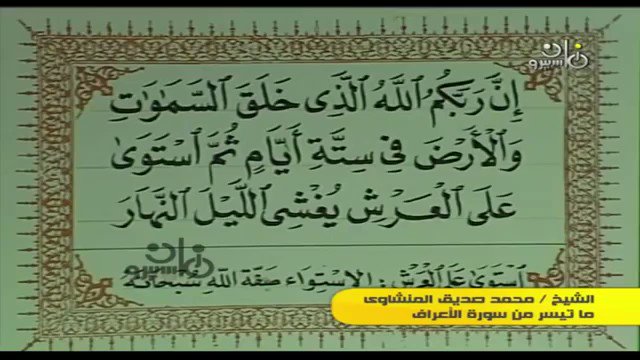 إِنَّ رَبَّكُمُ اللَّهُ الَّذِى خَلَقَ السَّمَٰوَٰتِ
وَالْأَرْضَ فِى سِتَّةِ أَيَّامٍ ثُمَّ اسْتَوَىٰ
عَلَى الْعَرْشِ يُغْشِى اللَّيْلَ النَّهَارَ
اسْتَوَىٰ عَلَى الْعَرْشِ : الاِسْتِوَاء صِفَةُ اللَّهِ سُبْحَانَهُ
الشيخ / محمد صديق المنشاوى
ما تيسر من سورة الأعراف